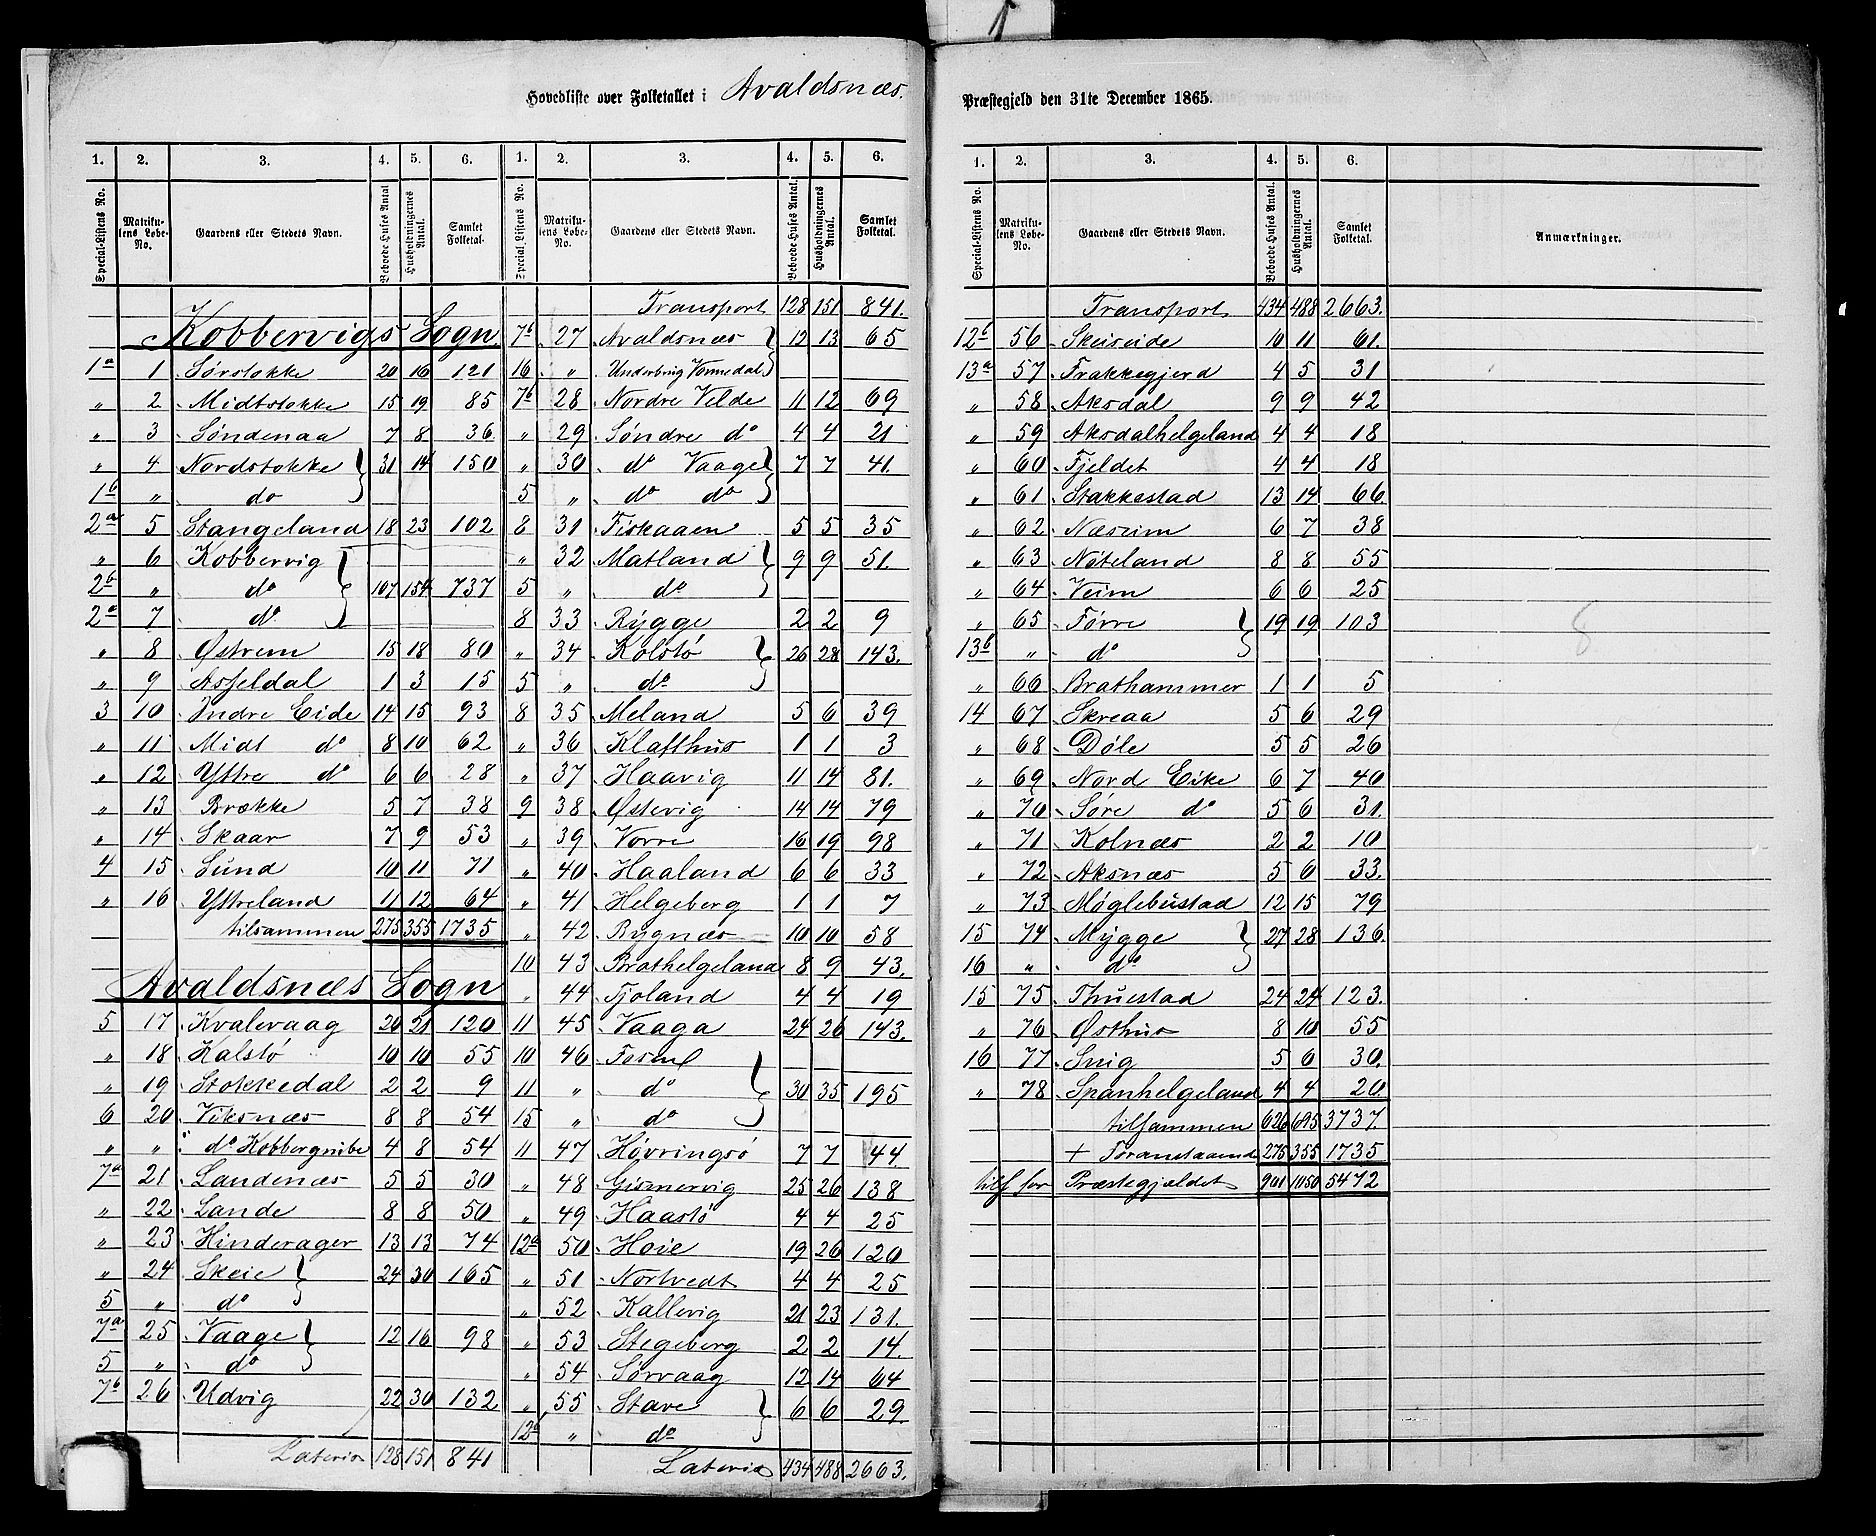 Hovedliste over Folketallet i Avaldsnæs.
1. 2. 3. 4. 5. 6. 1. 2. 3. 4. 5. 6.
Special-Listens No. Matrikulens Løbe-No. Gaardens eller Stedets Navn. Beboede Huses Antal Husholdningernes Antal. Samlet Folketal. Special-Listens No. Matrikulens Løbe-No. Gaardens eller Stedets Navn. Beboede Huses Antal. Husholdningernes Antal. Samlet Folketal.
Kobbervigs Sogn
1a 1 Sørstokke 20 16 121
„ 2 Midtstokke 15 19 85
„ 3 Søndenaa 7 8 36
„ 4 Nordstokke 31 14 150
1b „ do
2a 5 Stangeland 18 23 102
„ 6 Kobbervig
2b „ do 107 154 737
2a 7 do
„ 8 Østrem 15 18 80
„ 9 Asfeldal 1 3 15
3 10 Indre Eide 14 15 93
„ 11 Midt do 8 10 62
„ 12 Yttre do 6 6 28
„ 13 Brække 5 7 38
„ 14 Skaar 7 9 53
4 15 Sund 10 11 71
„ 16 Yttreland 11 12 64
tilsammen 275 355 1735
Avaldsnæs Sogn
5 17 Kvalevaag 20 21 120
„ 18 Kalstø 10 10 55
„ 19 Stokkedal 2 2 9
6 20 Viksnæs 8 8 54
„ „ do Kobbergrube 4 8 54
7a 21 Landenæs 5 5 30
„ 22 Lande 8 8 50
„ 23 Hinderager 13 13 74
„ 24 Skeie 24 30 165
5 „ do
7a 25 Vaage 12 16 98
5 „ do
7b 26 Udvig 22 30 132
Lateris 128 151 841
Transport 128 151 841.
7b 27 Avaldsnæs 12 13 65
16 „ Underbrug Vormedal
7b 28 Nordre Velde 11 12 69
„ 29 Søndre do 4 4 21
„ 30 do Vaage 7 7 41.
5 „ do do
8 31 Fiskaaen 5 5 35
„ 32 Matland 9 9 51.
5 „ do
8 33 Rygge 2 2 9
„ 34 Kolstø 26 28 143.
5 „ do
8 35 Meland 5 6 39
„ 36 Klafthus 1 1 3
„ 37 Haavig 11 14 81.
9 38 Østevig 14 14 79
„ 39 Vorre 16 19 98
„ 40 Haaland 6 6 33
„ 41 Helgeberg 1 1 7
„ 42 Bygnæs 10 10 58
10 43 Brathelgeland 8 9 43.
„ 44 Fjoland 4 4 19
11 45 Vaaga 24 26 143.
10 46 Fosen
11 „ do 30 35 195
15 „ do
11 47 Høvringsø 7 7 44
„ 48 Gismervig 25 26 138
„ 49 Haastø 4 4 25
12a 50 Hoie 19 26 120
„ 51 Nortvedt 4 4 25
„ 52 Kallevig 21 23 131.
„ 53 Stegeberg 2 2 14.
„ 54 Sørvaag 12 14 64
„ 55 Stave 6 6 29
12b „ do
Lateris 434 488 2663.
Præstegjeld den 31te December 1865.
1. 2. 3. 4. 5. 6.
Special-Listens No. Matrikulens Løbe-No. Gaardens eller Stedets Navn. Beboede Huses Antal. Husholdningernes Antal. Samlet Folketal. Anmærkninger.
Transport 434 488 2663.
12b 56 Skeiseide 10 11 61.
13a 57 Frakkegjerd 4 5 31
„ 58 Aksdal 9 9 42
„ 59 Aksdalhelgeland 4 4 18
„ 60 Fjeldet 4 4 18
„ 61 Stakkestad 13 14 66
„ 62 Næseim 6 7 38
„ 63 Nøteland 8 8 55
„ 64 Veim 6 6 25
„ 65 Førre 19 19 103
13b „ do
„ 66 Brathammer 1 1 5
14 67 Skreaa 5 6 29
„ 68 Døle 5 5 26
„ 69 Nord Eike 6 7 40
„ 70 Søre do 5 6 31.
„ 71 Kolnæs 2 2 10
„ 72 Aksnæs 5 6 33.
„ 73 Møglebustad 12 15 79
15 74 Mygge 27 28 136.
16 „ do
15 75 Thuestad 24 24 123.
„ 76 Østhus 8 10 55
16 77 Snig 5 6 30.
„ 78 Spanhelgeland 4 4 20
tilsammen 626 695 3737.
+ Foranstaaend 275 355 1735
tils for Præstegjældet 901 1050 5472
8